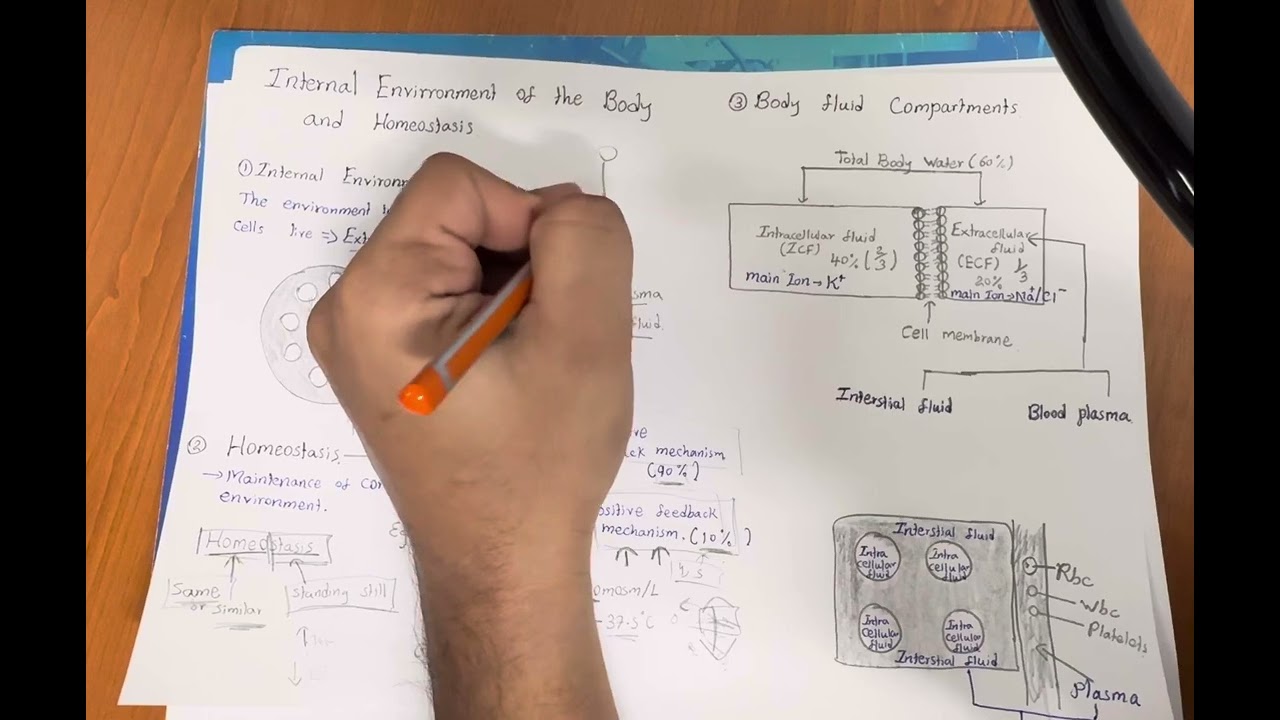 Internal Envirronment of the Body
and Homeostasis
① Internal
The environment
Cells live ⇒
② Homeostasis
→ Maintenance of
environment.
Homeostasis
Same
or similar
standing still
mechanism
(90%)
feedback
mechanism. (10%)
37.5°C
③ Body fluid Compartments
Total Body water (60%)
Intracellular fluid
(ICF) 40% (2/3)
main Ion → K⁺
Extracellular
fluid
(ECF) 1/3
20%
main Ion → Na⁺/Cl⁻
Cell membrane
Interstial fluid
Blood plasma
Interstial fluid
Intra
cellular
fluid
Intra
cellular
fluid
Intra
cellular
fluid
Intra
cellular
fluid
Interstial fluid
Rbc
wbc
Platelets
Plasma